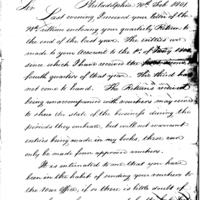 Sir Philadelphia 20th Feb 1801
Last evening I received your letter of the
9th ultimo enclosing your quarterly Return to
the end of the last year. The entries are
made to your Account to the 1st of July 1800
since which I have received the
fourth quarter of that year. The third has
not come to hand. The Returns received
being unaccompanied with vouchers may serve
to shew the state of the business during the
periods they embrace, but will not warrant
entries being made in my books, these can
only be made from approved vouchers.
It is intimated to me that you have
been in the habit of sending your vouchers to
the War Office, if so there is little doubt of